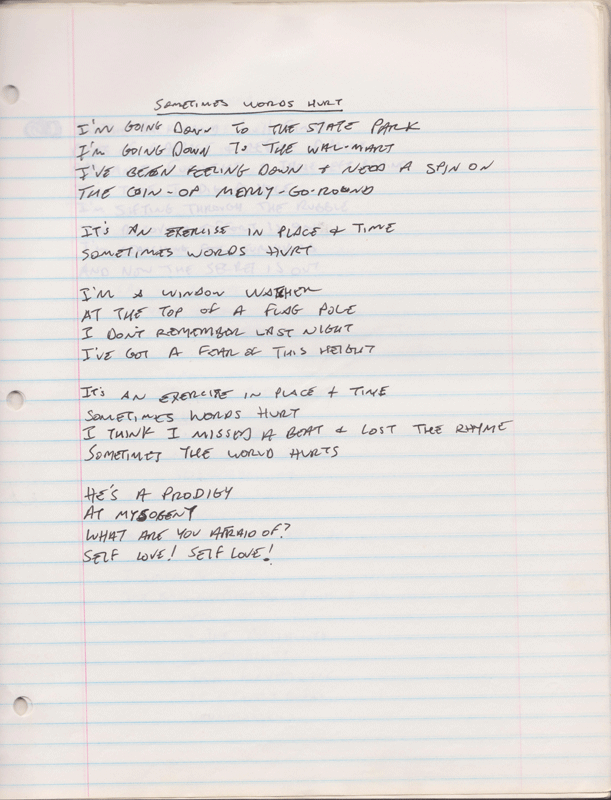 SOMETIMES WORDS HURT
I'M GOING DOWN TO THE STATE PARK
I'M GOING DOWN TO THE WAL-MART
I'VE BEEN FEELING DOWN + NEED A SPIN ON
THE COIN-OP MERRY-GO-ROUND
IT'S AN EXERCISE IN PLACE + TIME
SOMETIMES WORDS HURT
I'M A WINDOW WASHER
AT THE TOP OF A FLAG POLE
I DON'T REMEMBER LAST NIGHT
I'VE GOT A FEAR OF THIS HEIGHT
IT'S AN EXERCISE IN PLACE + TIME
SOMETIMES WORDS HURT
I THINK I MISSED A BEAT & LOST THE RHYME
SOMETIMES THE WORLD HURTS
HE'S A PRODIGY
AT MYSOGENY
WHAT ARE YOU AFRAID OF?
SELF LOVE! SELF LOVE!